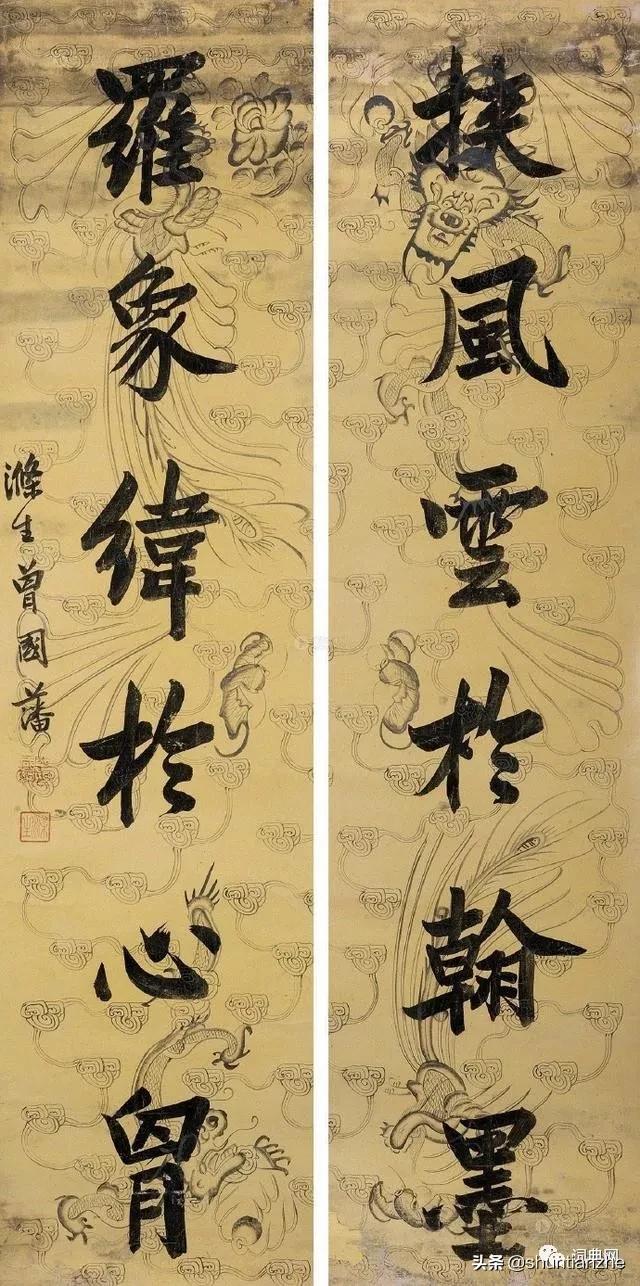 挟風雲於翰墨
羅象緯於心胷
滌生曾國藩
词典网
头条 @shuntianzhe